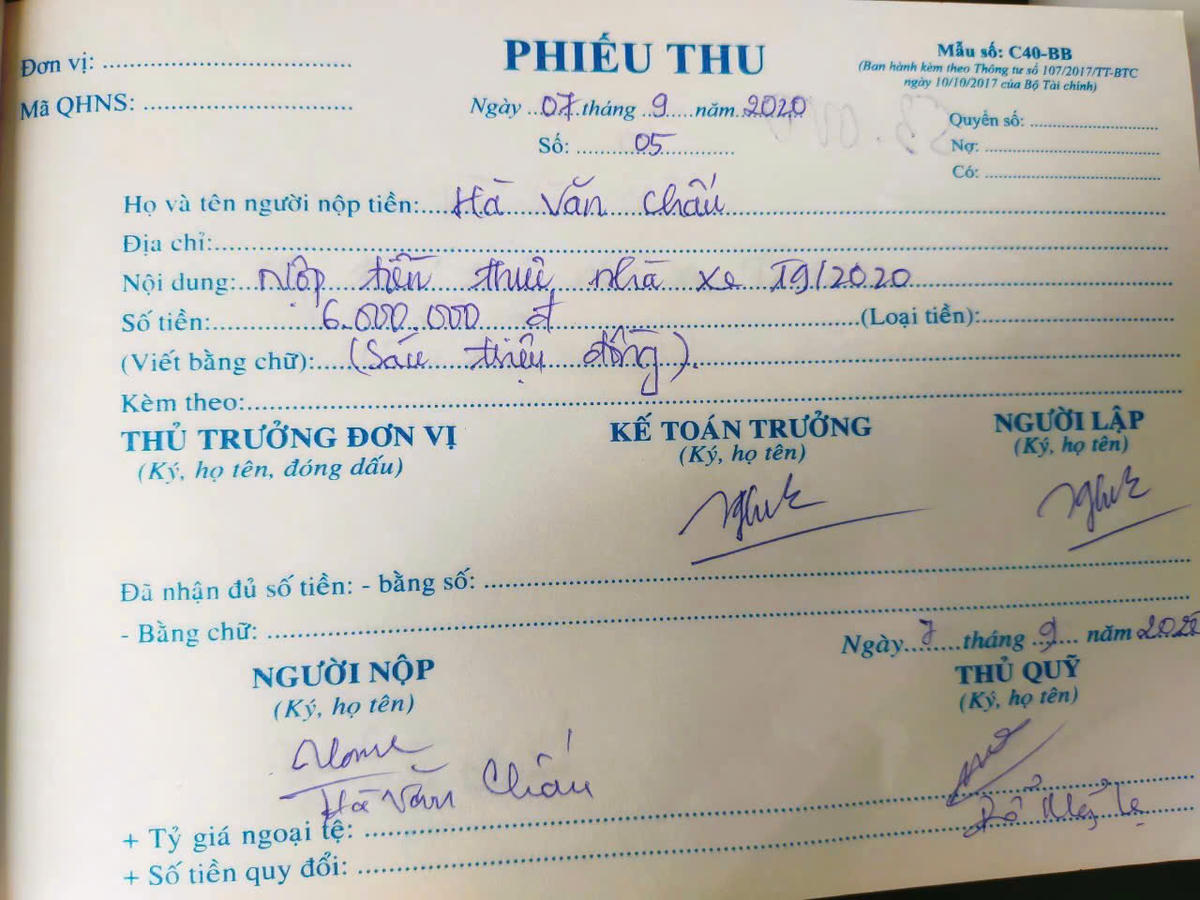 Đơn vị: ................................
Mã QHNS: ................................
PHIẾU THU
Ngày 07 tháng 9 năm 2020
Số: 05
Mẫu số: C40-BB
(Ban hành kèm theo Thông tư số 107/2017/TT-BTC
ngày 10/10/2017 của Bộ Tài chính)
Quyển số: ....................
Nợ: ....................
Có: ....................
Họ và tên người nộp tiền: Hà Văn Chấu
Địa chỉ: ................................
Nội dung: Nộp tiền thuê nhà xe T9/2020
Số tiền: 6.000.000 đ (Loại tiền): ....................
(Viết bằng chữ): (Sáu triệu đồng).
Kèm theo: ................................
THỦ TRƯỞNG ĐƠN VỊ KẾ TOÁN TRƯỞNG NGƯỜI LẬP
(Ký, họ tên, đóng dấu) (Ký, họ tên) (Ký, họ tên)
Đã nhận đủ số tiền: - bằng số: ................................
- Bằng chữ: ................................
Ngày 7 tháng 9 năm 2020
NGƯỜI NỘP THỦ QUỸ
(Ký, họ tên) (Ký, họ tên)
Hà Văn Chấu
+ Tỷ giá ngoại tệ: ................................
+ Số tiền quy đổi: ................................